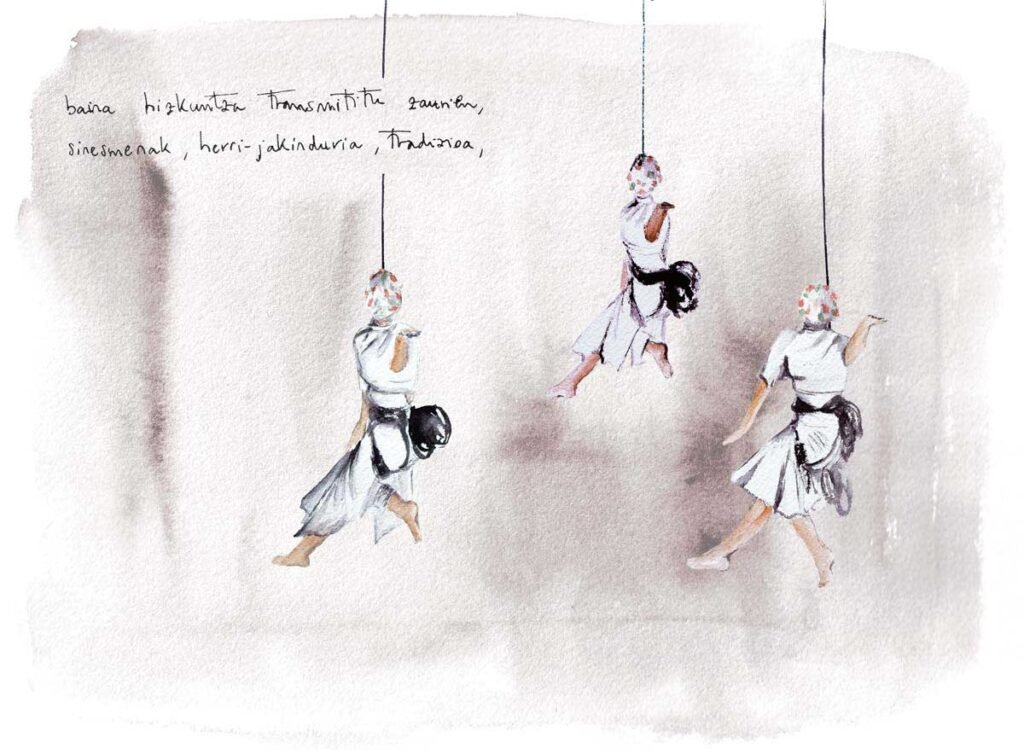 baina hizkuntza transmititu zaurien,
sinesmenak, herri-jakinduria, tradizioa,